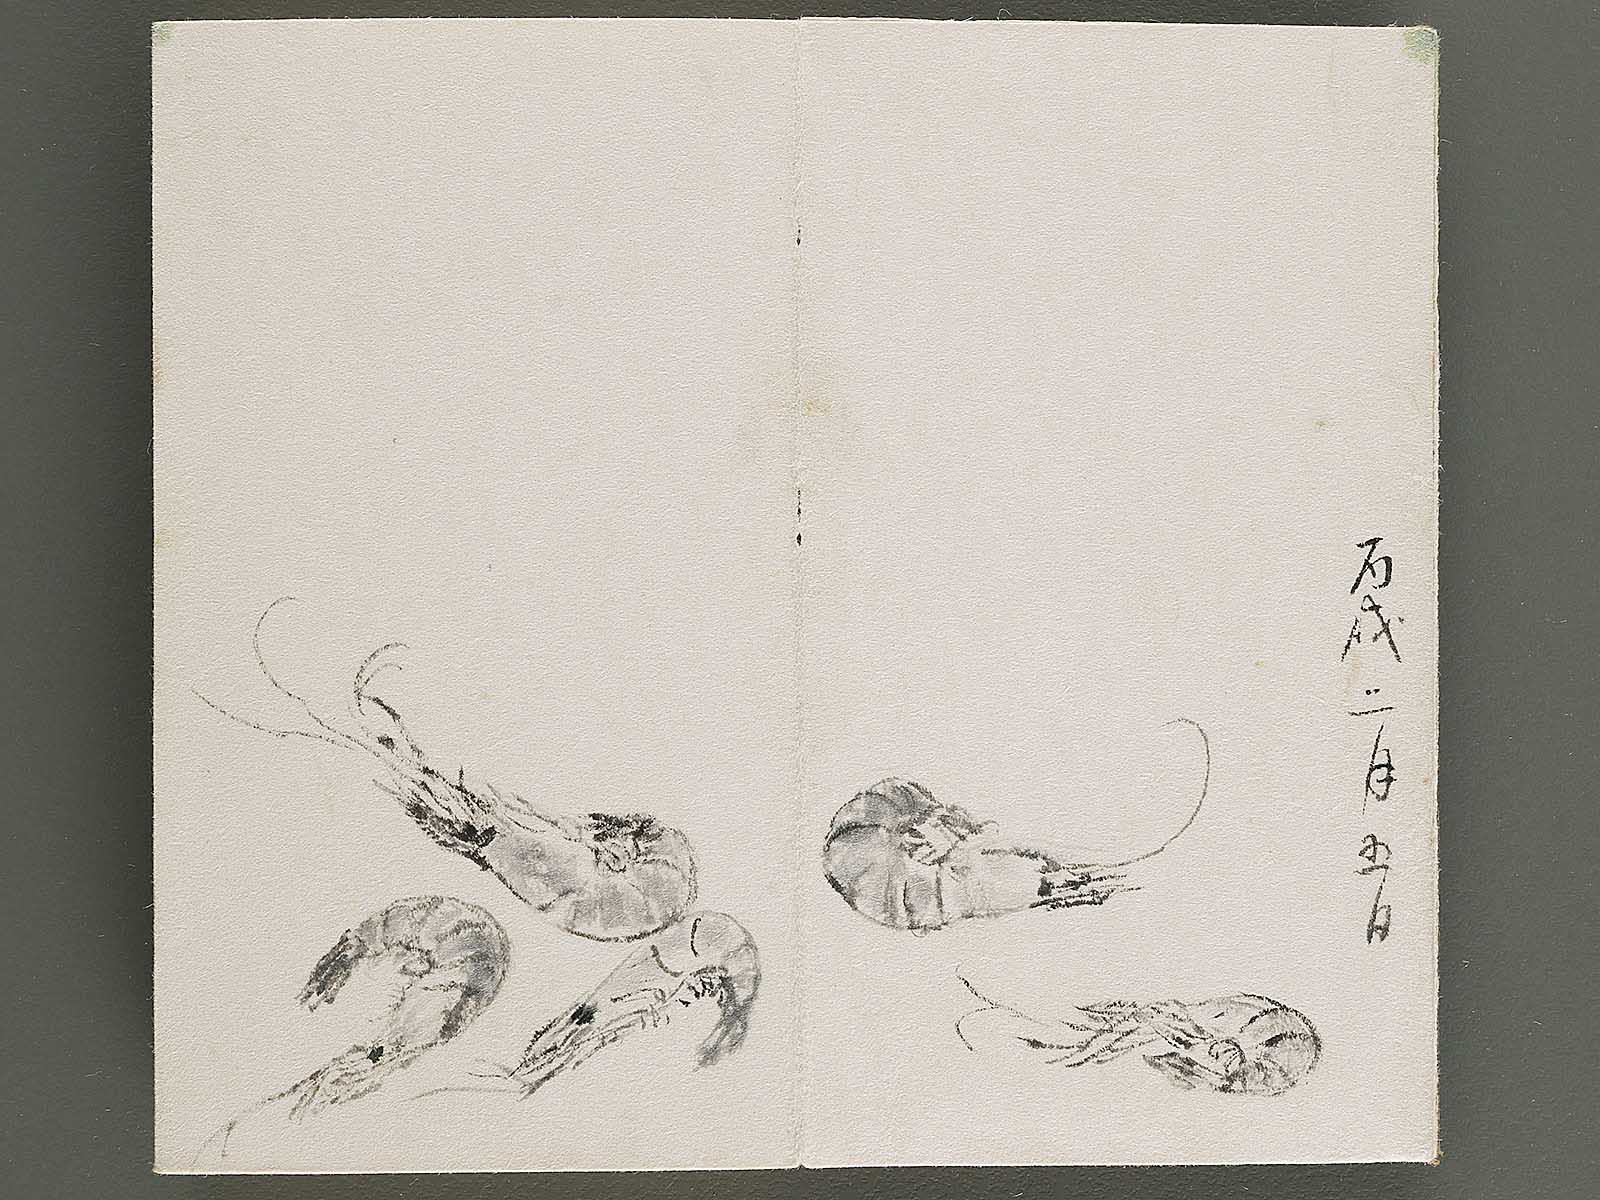 丙戌二月五日